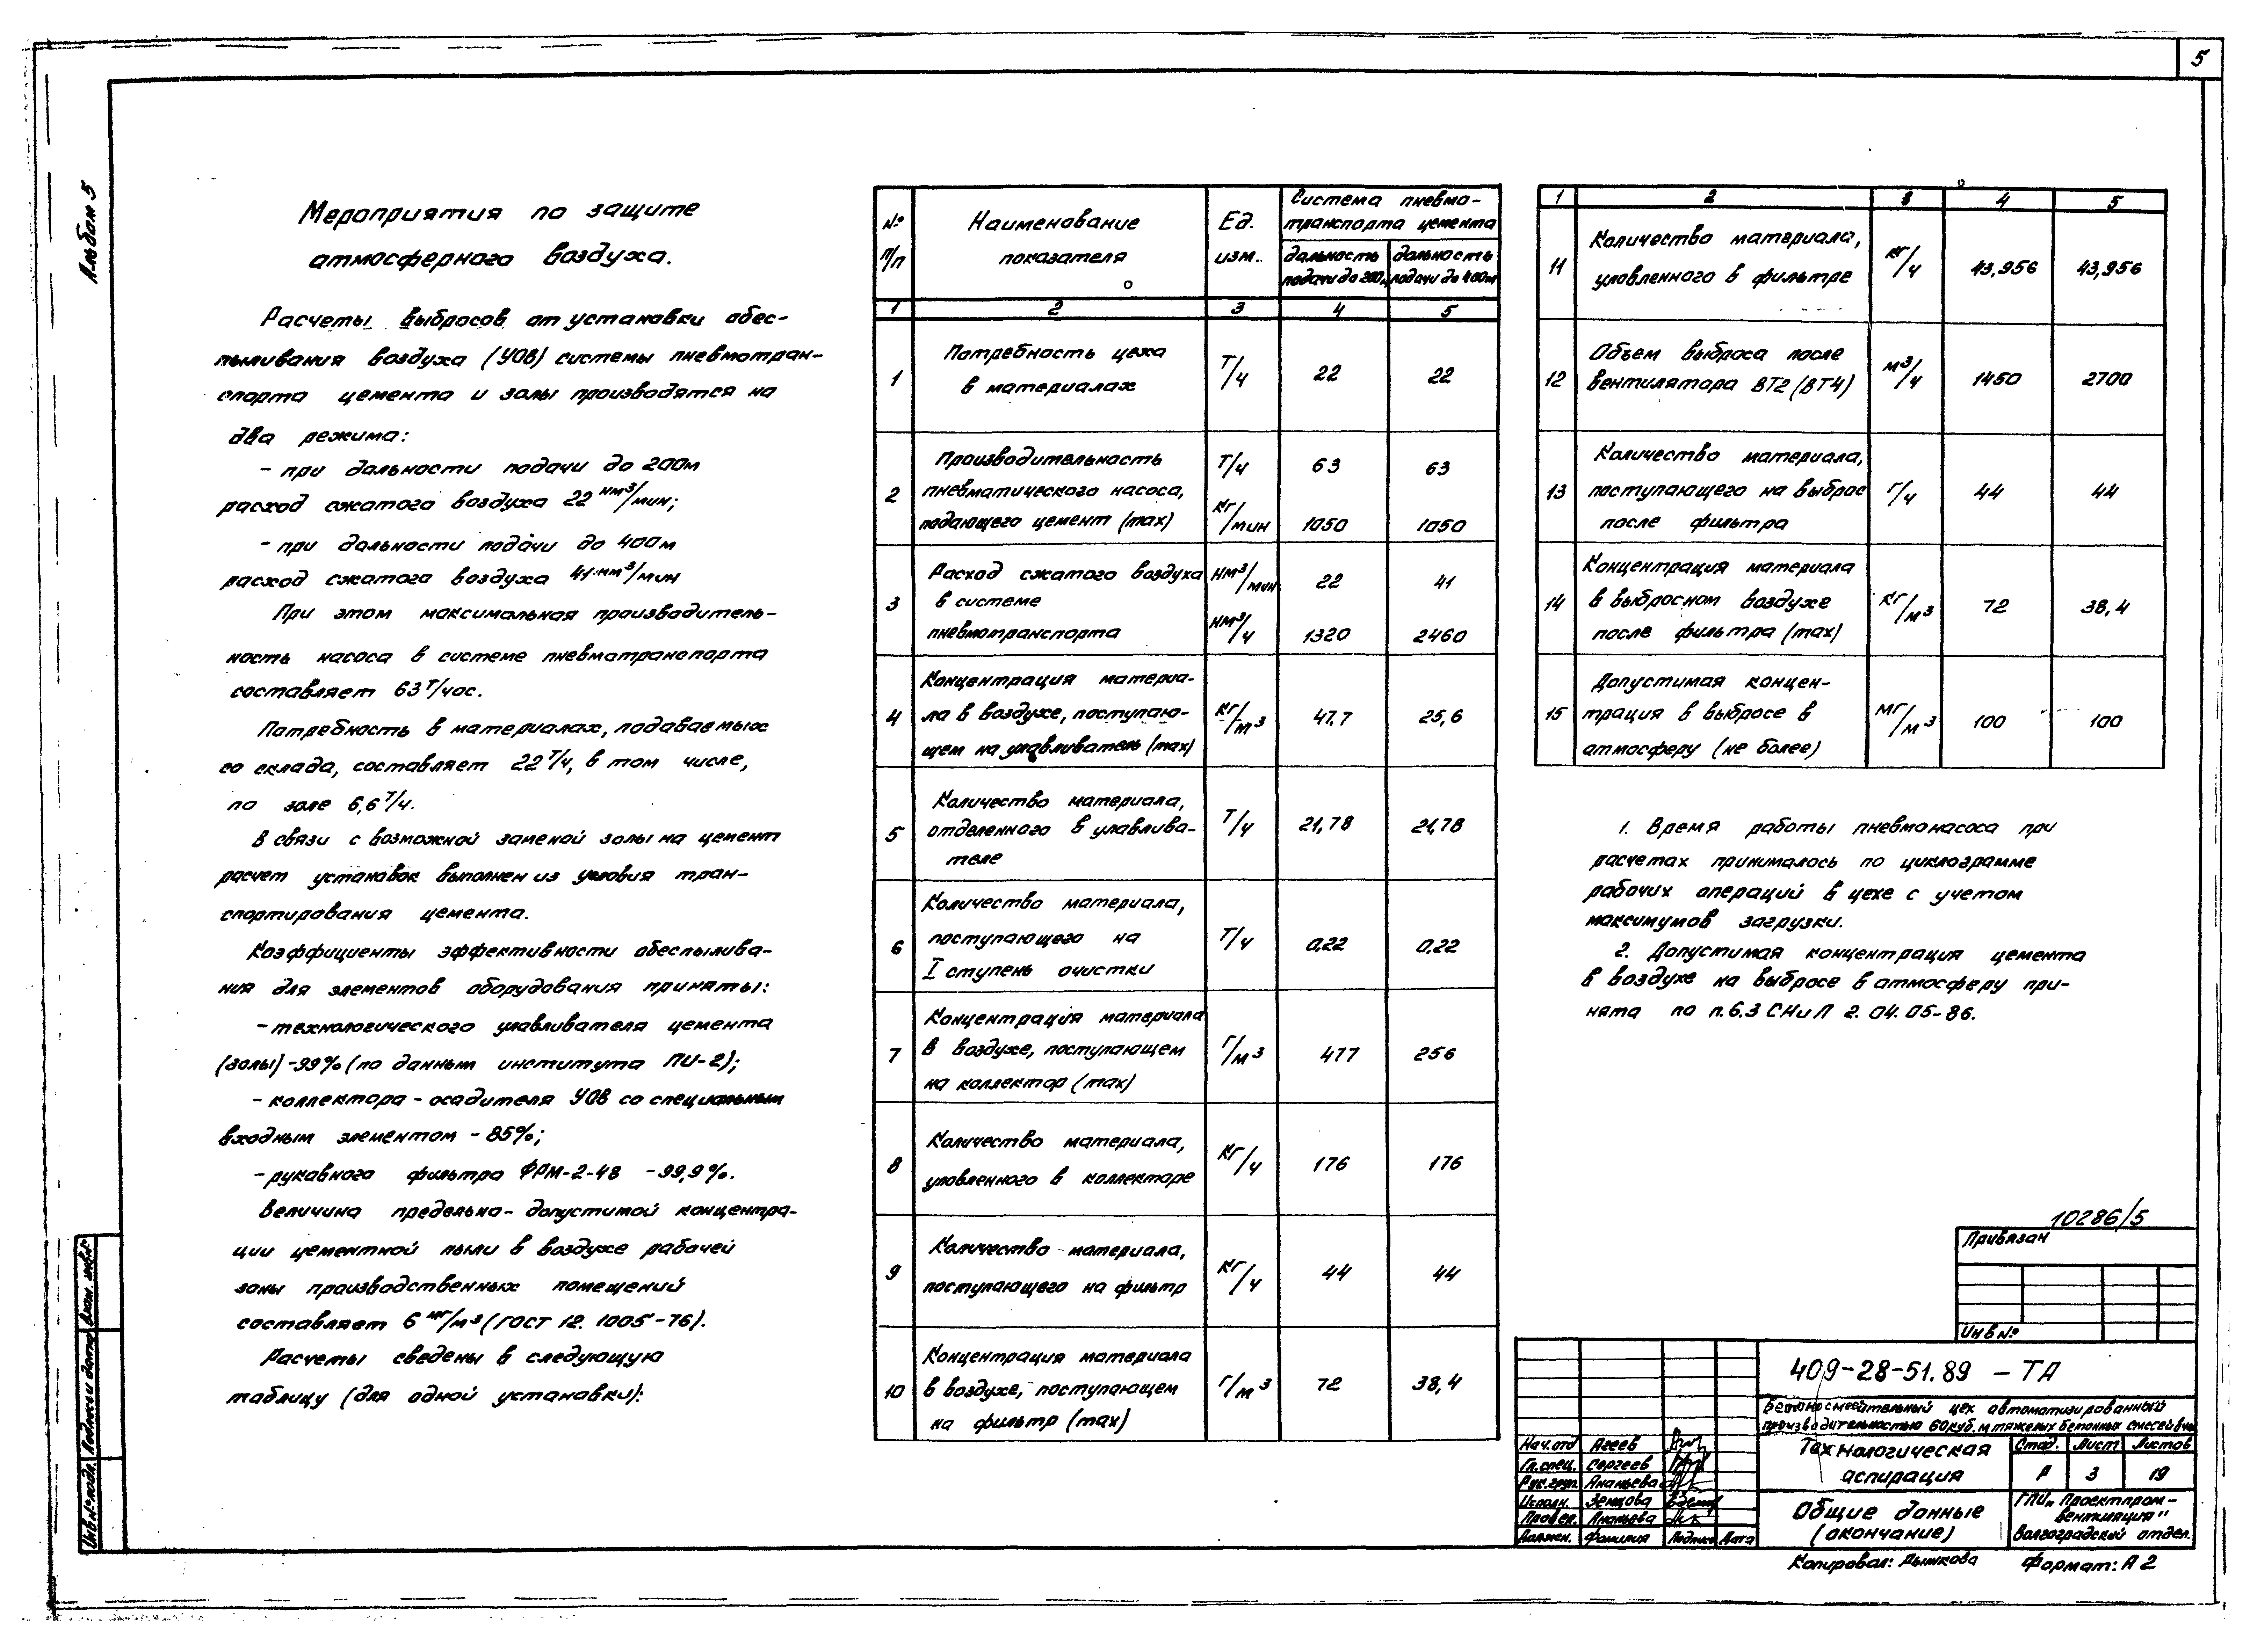 5
Альбом 5
Мероприятия по защите
атмосферного воздуха.
Расчеты выбросов от установки обес-
пыливания воздуха (УОВ) системы пневмотран-
спорта цемента и золы производятся на
два режима:
- при дальности подачи до 200м
расход сжатого воздуха 22 нм³/мин;
- при дальности подачи до 400м
расход сжатого воздуха 41 нм³/мин
При этом максимальная производитель-
ность насоса в системе пневмотранспорта
составляет 63 т/час.
Потребность в материалах, подаваемых
со склада, составляет 22 т/ч, в том числе,
по золе 6,6 т/ч.
В связи с возможной заменой золы на цемент
расчет установок выполнен из условия тран-
спортирования цемента.
Коэффициенты эффективности обеспылива-
ния для элементов оборудования приняты:
- технологического улавливателя цемента
(золы) - 99% (по данным института ПИ-2);
- коллектора - осадителя УОВ со специальным
входным элементом - 85%;
- рукавного фильтра ФРМ-2-48 - 99,9%.
Величина предельно-допустимой концентра-
ции цементной пыли в воздухе рабочей
зоны производственных помещений
составляет 6 мг/м³ (ГОСТ 12. 1005-76).
Расчеты сведены в следующую
таблицу (для одной установки):
№ п/п Наименование показателя Ед. изм. Система пневмо-
транспорта цемента
дальность подачи до 200м дальность подачи до 400м
1 2 3 4 5
1 Потребность цеха
в материалах Т/ч 22 22
2 Производительность Т/ч 63 63
пневматического насоса,
подающего цемент (max) кг/мин 1050 1050
3 Расход сжатого воздуха нм³/мин 22 41
в системе
пневмотранспорта нм³/ч 1320 2460
4 Концентрация материа-
ла в воздухе, поступаю- кг/м³ 47,7 25,6
щем на улавливатель (max)
5 Количество материала,
отделенного в улавлива- Т/ч 21,78 21,78
теле
6 Количество материала,
поступающего на Т/ч 0,22 0,22
I ступень очистки
7 Концентрация материала
в воздухе, поступающем г/м³ 477 256
на коллектор (max)
8 Количество материала,
уловленного в коллекторе кг/ч 176 176
9 Количество материала,
поступающего на фильтр кг/ч 44 44
10 Концентрация материала
в воздухе, поступающем г/м³ 72 38,4
на фильтр (max)
1 2 3 4 5
11 Количество материала,
уловленного в фильтре кг/ч 43,956 43,956
12 Объем выброса после
вентилятора ВТ2 (ВТ4) м³/ч 1450 2700
13 Количество материала,
поступающего на выброс г/ч 44 44
после фильтра
14 Концентрация материала
в выбросном воздухе кг/м³ 72 38,4
после фильтра (max)
15 Допустимая концен-
трация в выбросе в мг/м³ 100 100
атмосферу (не более)
1. Время работы пневмонасоса при
расчетах принималось по циклограмме
рабочих операций в цехе с учетом
максимумов загрузки.
2. Допустимая концентрация цемента
в воздухе на выбросе в атмосферу при-
нята по п.6.3 СНиП 2. 04. 05-86.
10286/5
Привязан
Инв №
409-28-51.89 - ТА
Бетоносмесительный цех автоматизированный
производительностью 60 куб. м тяжелых бетонных смесей в час
Технологическая
аспирация
Стад. Лист Листов
Р 3 19
Общие данные
(окончание)
ГПИ „Проектпром-
вентиляция"
Волгоградский отдел.
Нач.отд Агеев
Гл.спец. Сергеев
Рук.груп. Ананьева
Исполн. Земцова
Провер. Ананьева
Должн. Фамилия Подпись Дата
Копировал: Дынкова Формат: А2
Инв № подл. Подпись и дата Взам. инв №